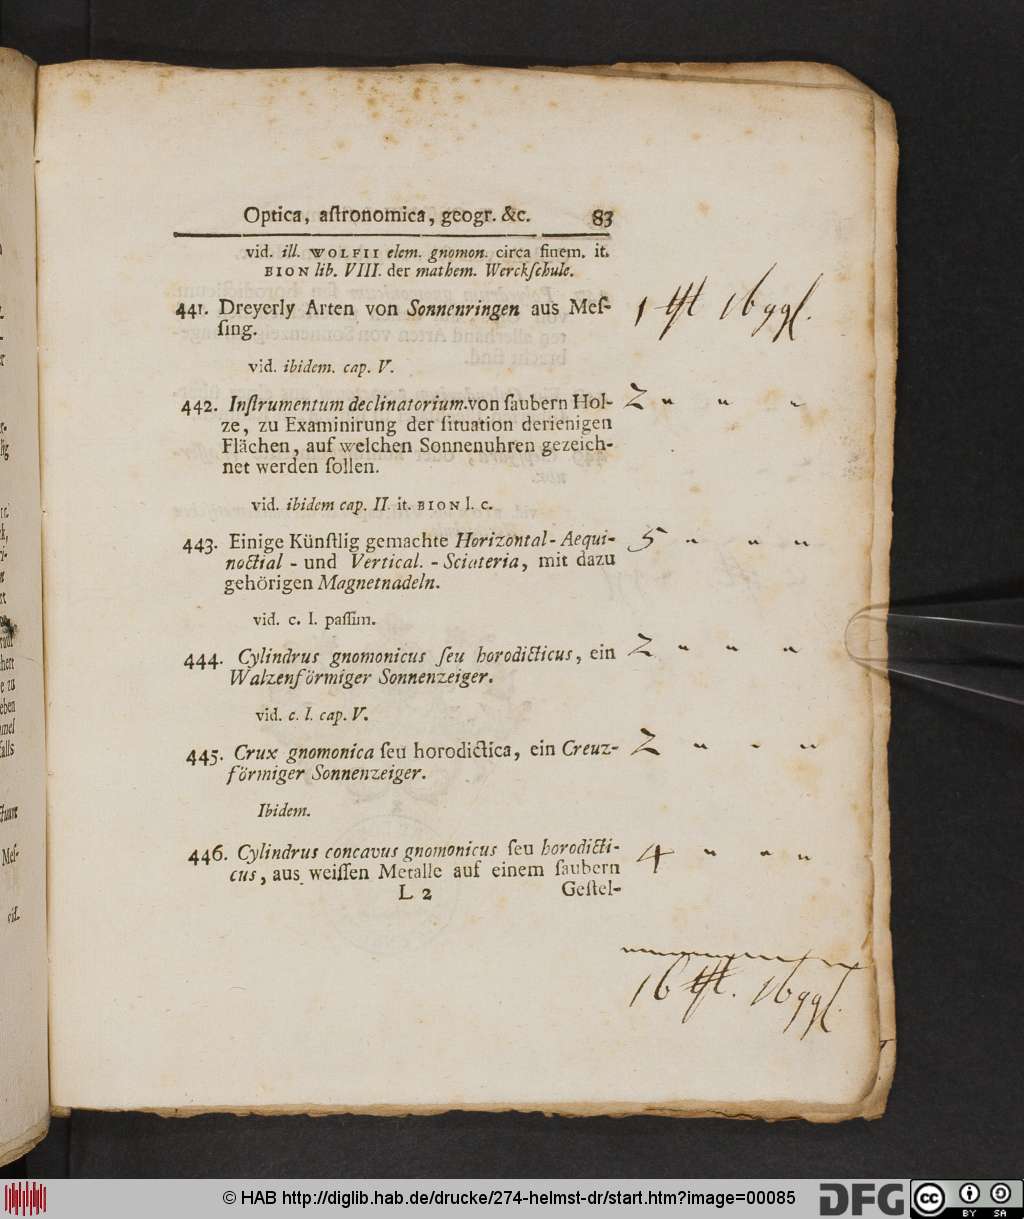 Optica, aſtronomica, geogr. &c. 83
vid. ill. WOLFII elem. gnomon. circa finem. it.
BION lib. VIII. der mathem. Werckſchule.
441. Dreyerly Arten von Sonnenringen aus Meſ-
ſing.
1 16 ggl.
vid. ibidem. cap. V.
442. Inſtrumentum declinatorium von ſaubern Hol-
ze, zu Examinirung der ſituation derienigen
Flächen, auf welchen Sonnenuhren gezeich-
net werden ſollen.
2 " " "
vid. ibidem cap. II. it. BION l. c.
443. Einige Künſtlig gemachte Horizontal- Aequi-
noctial - und Vertical. - Sciateria, mit dazu
gehörigen Magnetnadeln.
5 " " "
vid. c. l. paſſim.
444. Cylindrus gnomonicus ſeu horodicticus, ein
Walzenförmiger Sonnenzeiger.
2 " " "
vid. c. l. cap. V.
445. Crux gnomonica ſeu horodictica, ein Creuz-
förmiger Sonnenzeiger.
2 " " "
Ibidem.
446. Cylindrus concavus gnomonicus ſeu horodicti-
cus, aus weiſſen Metalle auf einem ſaubern
4 " " "
L 2 Geſtel-
16 16 ggl.
© HAB http://diglib.hab.de/drucke/274-helmst-dr/start.htm?image=00085
DFG
cc BY SA